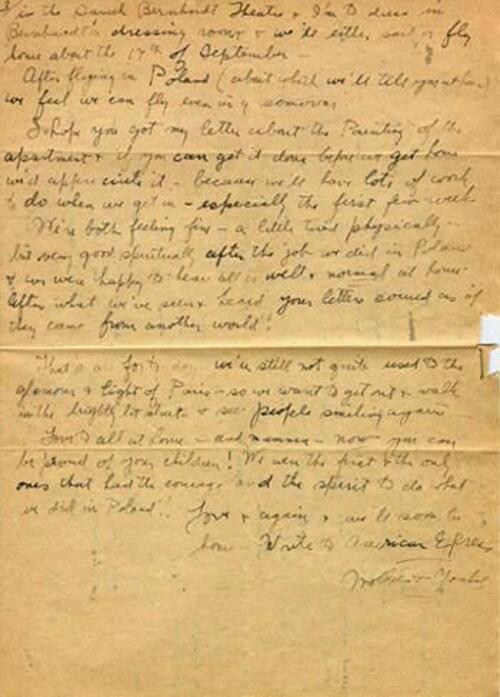 is in the Sarah Bernhardt Theatre & I'm to dress in
Bernhardt's dressing room & we'll either sail or fly
home about the 17th of September –
After flying in Poland (about which we'll tell you at home)
we feel we can fly even in a
I hope you got my letter about the Painting of the
apartment & if you can get it done before we get home
we'd appreciate it – because we'll have lots of work
to do when we get in – especially the first few weeks
We're both feeling fine – a little tired physically –
but very good spiritually after the job we did in Poland
& we were happy to hear all is well & normal at home.
After what we've seen & heard your letters sound as if
they came from another world!
That's all for to day we're still not quite used to the
glamour & light of Paris – so we want to get out & walk
in the brightly lit streets & see people smiling again
Love to all at home – and mamma – now you can
be proud of your children! We were the first & the only
ones that had the courage and the spirit to do what
we did in Poland!! Love & again & we'll soon be
home – Write to American Express